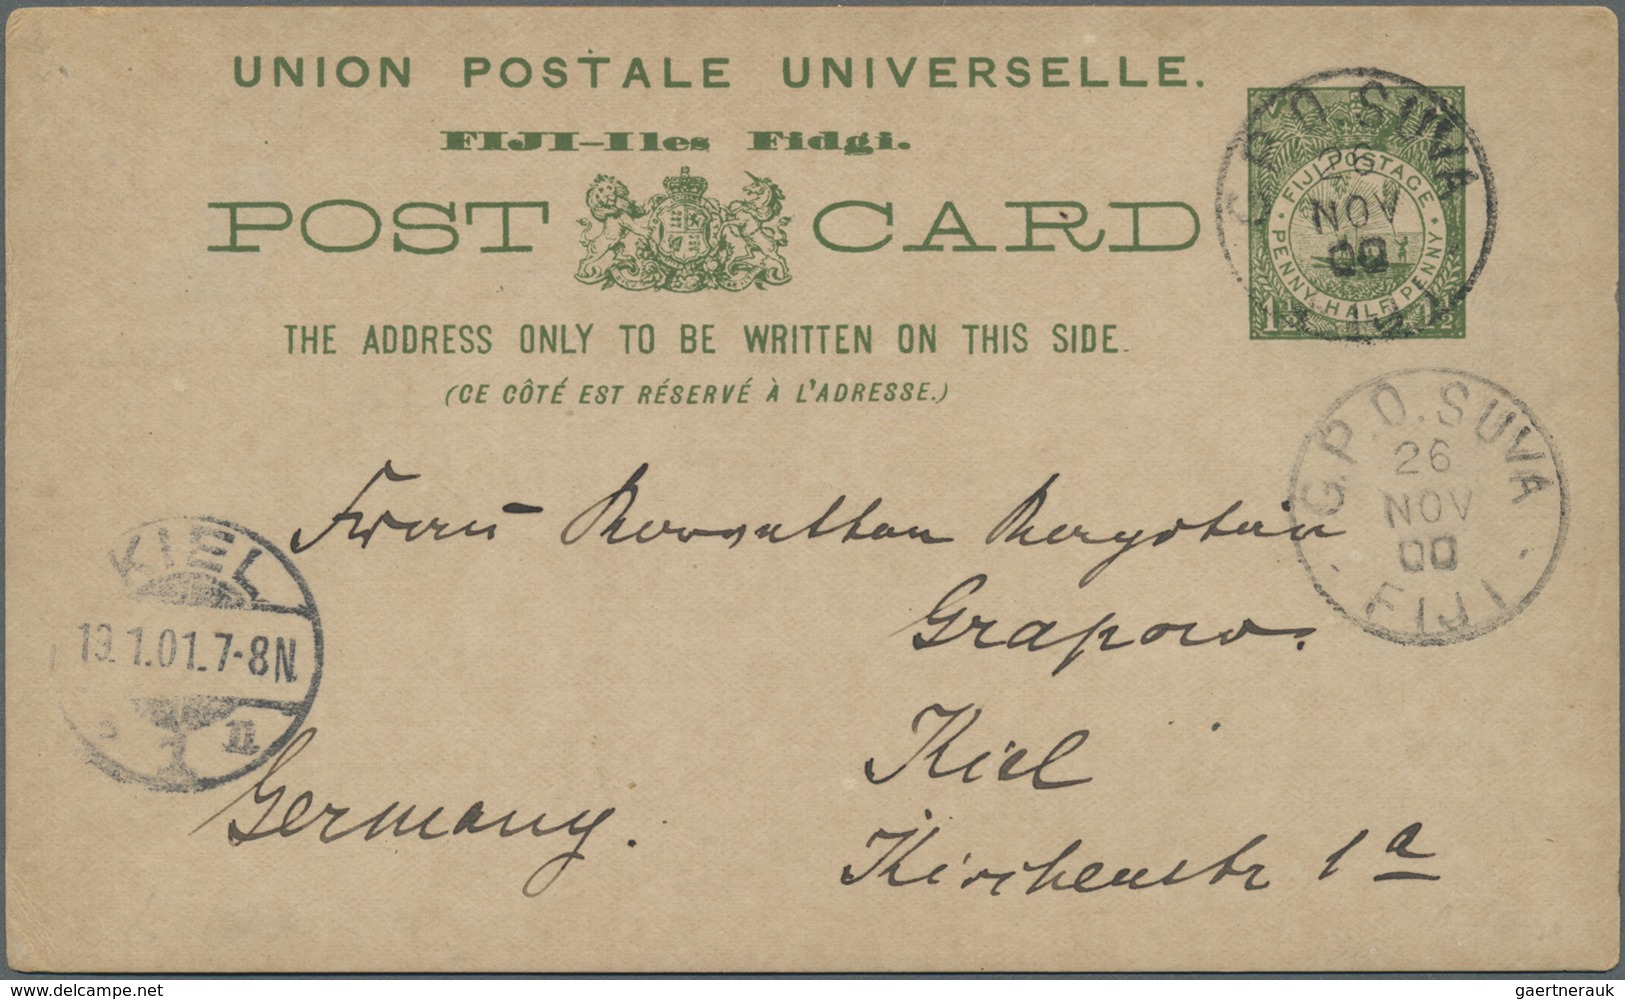 UNION POSTALE UNIVERSELLE.
FIJI-Iles Fidgi.
POST CARD
THE ADDRESS ONLY TO BE WRITTEN ON THIS SIDE.
(CE CÔTÉ EST RÉSERVÉ À L'ADRESSE.)
G.P.O. SUVA
26
NOV
00
FIJI POSTAGE
PENNY HALFPENNY
1½ 1½
G.P.O. SUVA
26
NOV
00
FIJI
KIEL
19.1.01.7-8N.
1 n
Grapow.
Kiel
Germany.
Kirchenstr 1a
delcampe.net
gaertnerauk